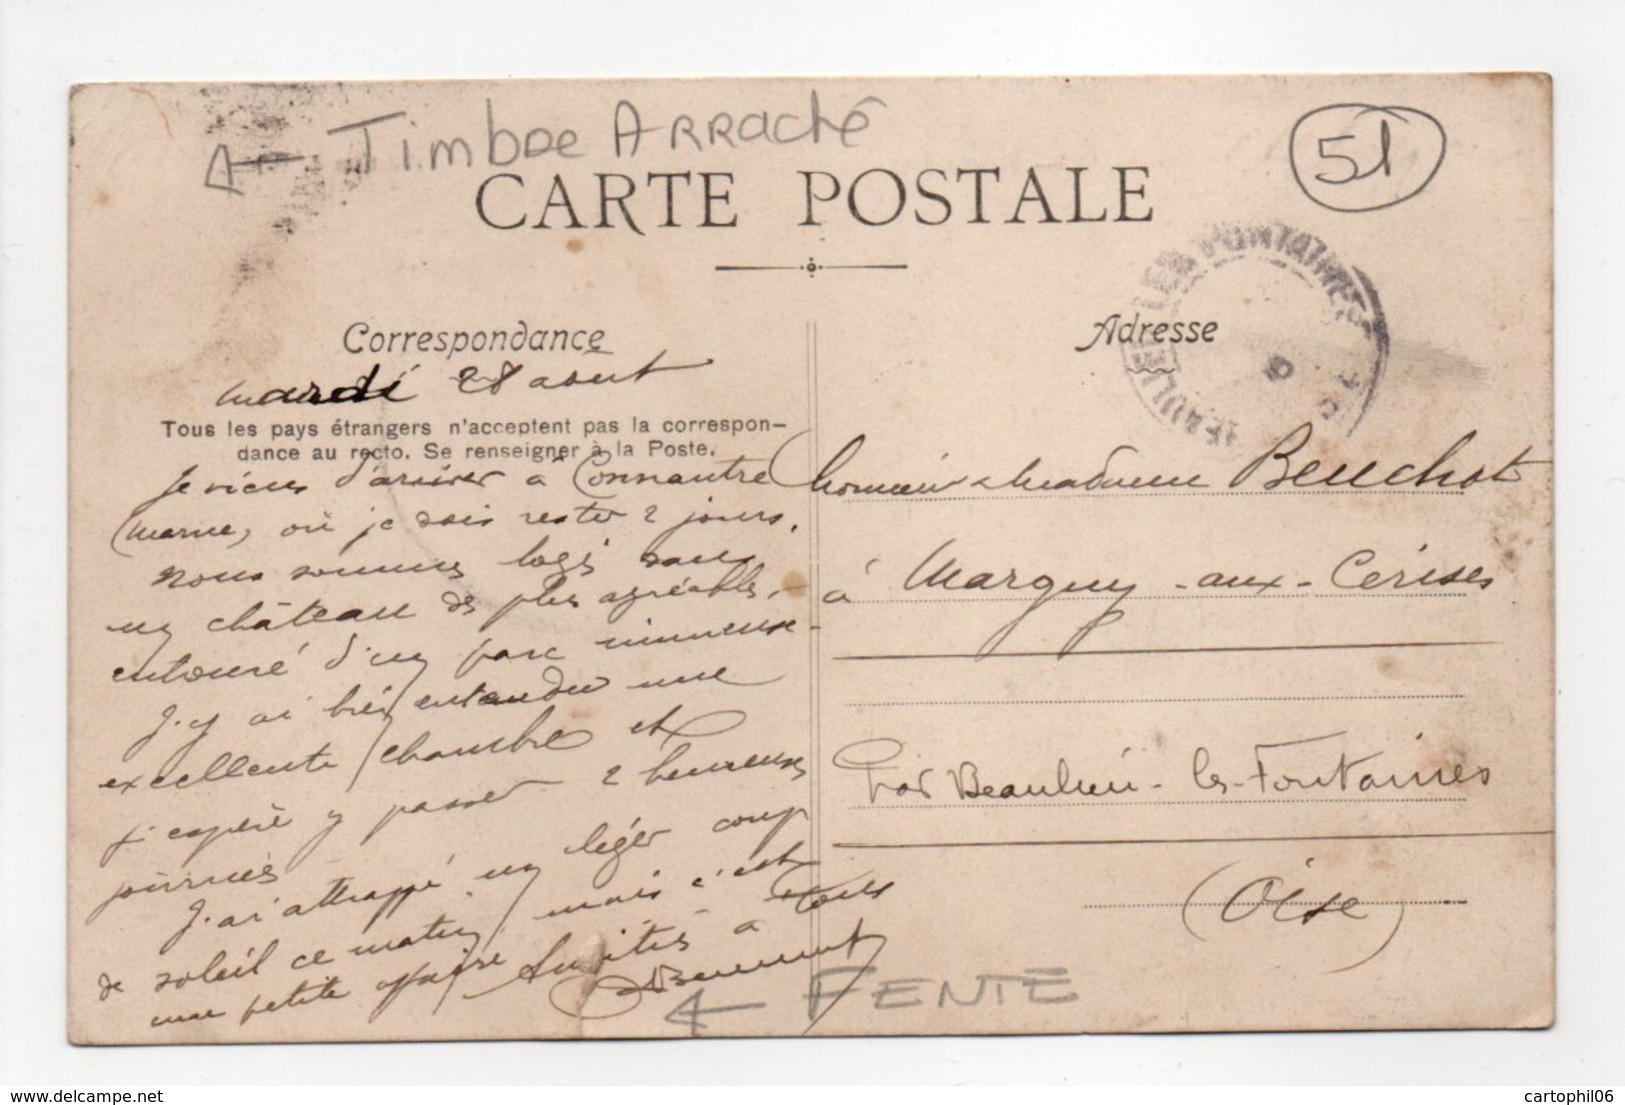 ← Timbre Arraché
51
CARTE POSTALE
BEAULIEU LES FONTAINES
Correspondance
Adresse
mardi 28 août
Tous les pays étrangers n'acceptent pas la correspon-
dance au recto. Se renseigner à la Poste.
Je viens d'arriver à Connantre
(Marne, où je dois rester 2 jours.
Nous sommes logés dans
un château des plus agréables,
entouré d'un parc immense.
J'y ai bien entendu une
excellente chambre et
j'espère y passer 2 heureuses
journées
J'ai attrappé un léger coup
de soleil ce matin, mais c'est
une petite affaire Amitiés à tous
Monsieur & Madame Beuchot
à Marguy-aux-Cerises
Par Beaulieu-les-Fontaines
(Oise)
← FENTE
cartophil06